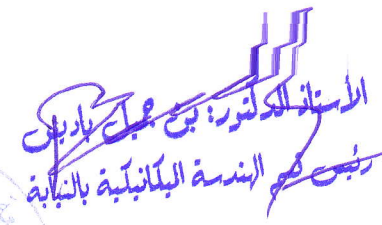 الأستاذ الدكتور: بن جميل باديس
رئيس قسم الهندسة الميكانيكية بالنيابة